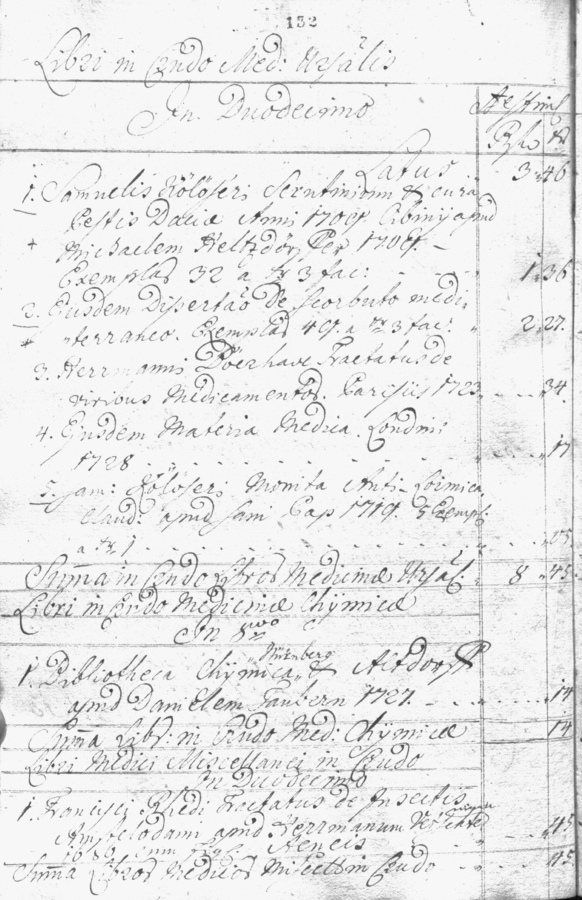 132
Libri in Crudo Med: Usualis
In Duodecimo
Aestim
Rfl xr
Latus 3 46
1. Samuelis Köleseri Scrutinium & cura
Pestis Daciæ Anni 1709. Cibinij apud
+ Michaelem Heltzdörffer 1709. –
Exemplar 32 a xr 3 fac: 1 36
2. Ejusdem Dissertao De Scorbuto medi-
terraneo. Exemplar 49. a xr 3 fac: 2 27.
3. Herrmanni Boerhave Tractatus de
viribus Medicamentor. Parisijs 1723 34.
4. Ejusdem Materia Medica. Londini
1728 17
5. Sam: Köleseri Monita Anti-Loimica
Claud: apud Sam Pap 1719. 5 Exempl:
a xr 1
Suma in Crudo Libros Medicinæ Usual: 8 45
Libri in Crudo Medicinæ Chÿmicæ
In 8vo
1. Bibliotheca Chÿmica Nürnberg & Altdorff
apud Danielem Taubern 1727. 14
Suma Libr: in Crudo Med: Chÿmicæ 14
Libri Medici Miscellanei in Crudo
In Duodecimo
1. Francisci Rhedi Tractatus de Insectis
Amstelodami apud Herrmanum 45
1686 cum Aeneis
Suma Libros Medicos Miscell in Crudo 45